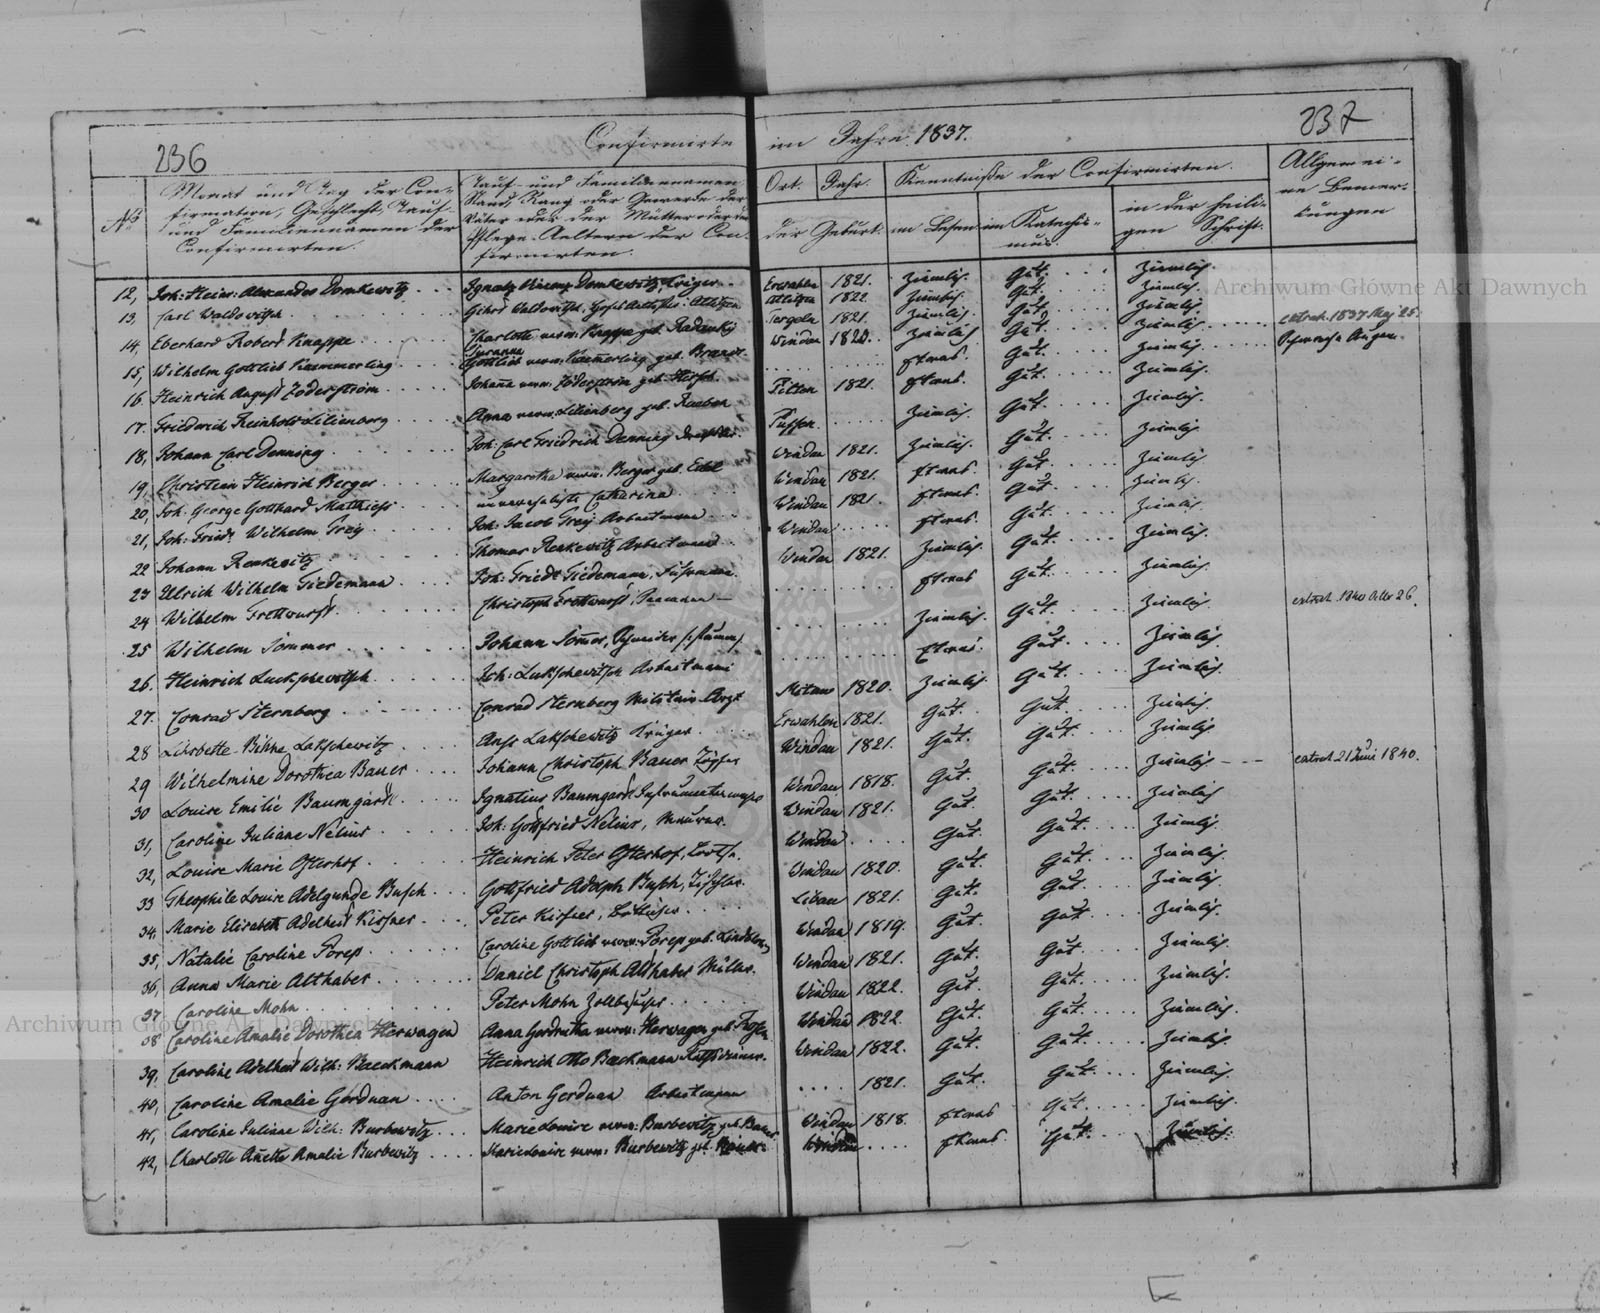 236
Confirmirte im Jahre 1837.
237
№
Monat und Tag der Con-
firmation, Geschlecht, Tauf-
und Familiennamen der
Confirmirten.
Tauf- und Familiennamen,
Stand, Rang oder Gewerbe der
Väter oder der Mütter oder der
Pflege-Aeltern der Con-
firmirten.
Ort. Jahr.
der Geburt.
Kenntniße der Confirmirten.
im Lesen im Katechis-
mus.
in der heili-
gen Schrift.
Allgemei-
ne Bemer-
kungen
12, Joh: Heinr: Alexander Domkewitz Ignatz Domkewitz, Krüger Erwahlen 1821. Ziemlich. Gut. Ziemlich.
13, Carl Waldowitsch 1822. Ziemlich. Gut. Ziemlich.
14, Eberhard Robert Knappe Charlotte verw: Knappe geb. Radetzky 1821. Ziemlich. Gut. Ziemlich. extrah. 1837 May 25.
15, Wilhelm Gottlieb Kaemmerling Susanna Gottlieb verw: Kaemerling geb. Brandt. Windau 1820. Ziemlich. Gut. Ziemlich. Schwache Augen.
16. Heinrich August Föderström Johana verw: Föderström geb. Hirsch. etwas. Gut. Ziemlich.
17. Friedrich Reinhold Lilienberg Anna verw. Lilienberg geb. Pilten 1821. etwas. Gut. Ziemlich.
18, Johann Carl Denning Joh: Carl Friedrich Denning Ziemlich. Gut. Ziemlich.
19, Christian Heinrich Berger Margaretha verw. Berger geb. Edel Windau 1821. Ziemlich. Gut. Ziemlich.
20, Joh. George Gotthard Matthiess unverehelichte Catharina Windau 1821. etwas Gut. Ziemlich.
21, Joh: Friedr Wilhelm Frey Joh. Jacob Frey Arbeitsmann Windau 1821. etwas Gut. Ziemlich.
22 Johann Renkewitz Thomas Renkewitz Arbeitsmann Windau etwas. Gut. Ziemlich.
23 Ulrich Wilhelm Tiedemann Joh: Friedr Tiedemann, Fuhrmann. Windau 1821. Ziemlich. Gut. Ziemlich.
24 Wilhelm Frettwurst Christoph Frettwurst, etwas Gut. Ziemlich.
25 Wilhelm Sommer Johann Somer, Schneider Ziemlich. Gut. Ziemlich. extrah. 1840 Octbr 26.
26. Heinrich Luckschewitsch Joh: Lukschewitsch Arbeitsmann Etwas. Gut. Ziemlich.
27. Conrad Sternberg Conrad Sternberg Militair-Arzt Mitau 1820. Ziemlich. Gut. Ziemlich.
28 Liesbette Lakschewitz Ans Lakschewitz Krüger Erwahlen 1821. Gut. Gut Ziemlich
29 Wilhelmine Dorothea Bauer Johann Christoph Bauer Töpfer Windau 1821. Gut. Gut. Ziemlich
30 Louise Emilie Baumgardt Ignatius Baumgardt Instrumentenmacher Windau 1818. Gut. Gut. Ziemlich extrah 21 Juni 1840.
31, Caroline Juliane Nelius Joh. Gottfried Nelius, Maurer. Windau 1821. Gut. Gut. Ziemlich
32, Louise Marie Osterhof Heinrich Peter Osterhof, Lootse. Windau Gut. Gut. Ziemlich.
33 Theophile Louise Adelgunde Busch Gottfried Adolph Busch, Tischler. Windau 1820. Gut. Gut. Ziemlich.
34. Marie Elisabeth Adelheid Kirschner Peter Libau 1821. Gut. Gut. Ziemlich.
35, Natalie Caroline Porep Caroline Gottlieb verw. Porep geb. Windau 1819. Gut Gut Ziemlich.
36, Anna Marie Althaber Daniel Christoph Althaber Müller. Windau 1821. Gut. Gut. Ziemlich.
37 Caroline Mohn Peter Mohn Zollbesucher Windau 1822. Gut. Gut. Ziemlich.
38 Caroline Amalie Dorothea Herwagen Anna Gerdrutha verw: Herwagen geb. Windau 1822. Gut. Gut. Ziemlich.
39, Caroline Adelheid Wilh: Baeckmann Heinrich Otto Baeckmann Rathsdiener. Windau 1822. Gut. Gut. Ziemlich
40, Caroline Amalie Gerduan Anton Gerduan Arbeitsmann 1821. Gut. Gut. Ziemlich.
41, Caroline Juliane Wilh: Burbewitz Marie Louise verw: Burbewitz geb. Windau 1818. etwas Gut. Ziemlich.
42, Charlotte Anette Amalie Burbewitz Marie Louise verw: Burbewitz geb. Windau etwas. Gut. Ziemlich.
Archiwum Główne Akt Dawnych
Archiwum Główne Akt Dawnych